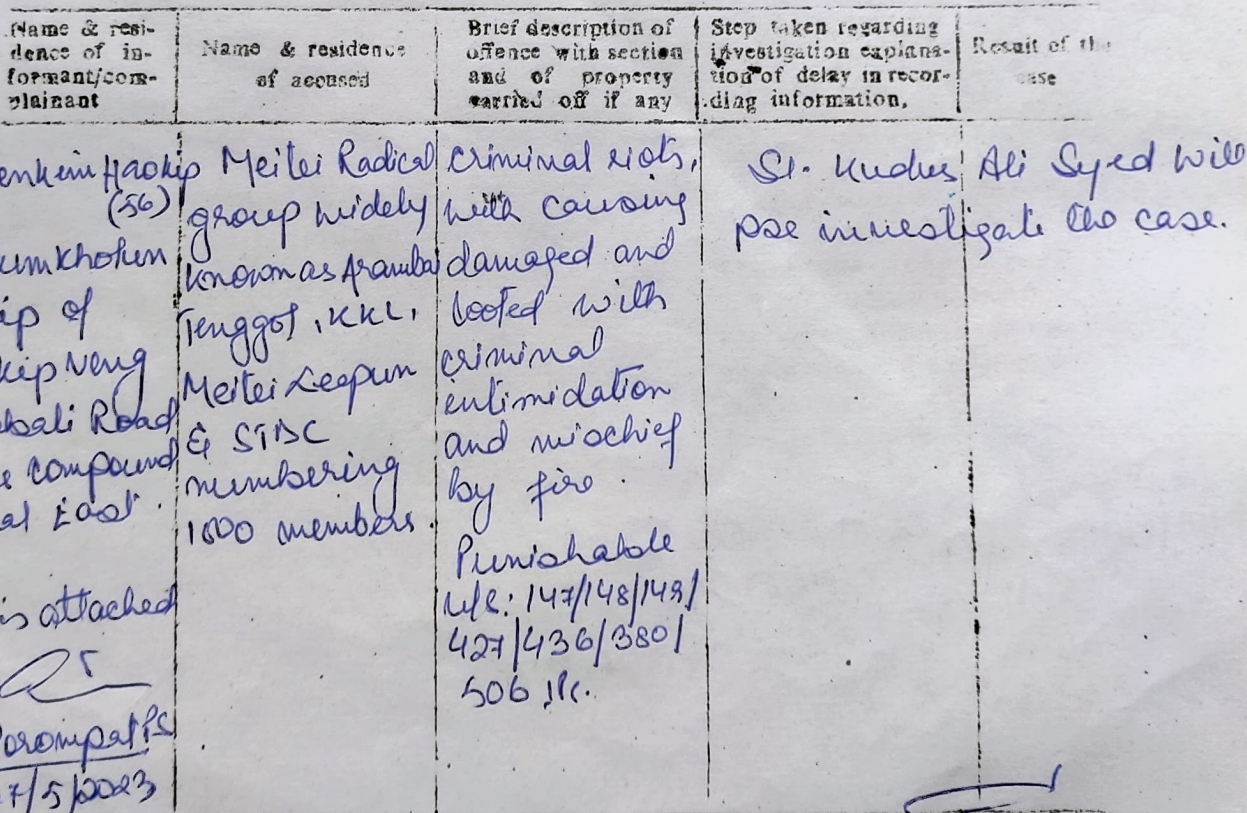 Name & resi-
dence of in-
formant/com-
plainant
Name & residence
of accused
Brief description of
offence with section
and of property
carried off if any
Step taken regarding
investigation explana-
tion of delay in recor-
ding information.
Result of the
case
enkim Haokip
(56)
umkholun
ip of
kip Veng
bali Road
compound
al East.
is attached
Porompat PS
7/5/2023
Meitei Radical
group widely
known as Arambai
Tenggol, KKL,
Meitei Leepun
& STDC
numbering
1500 members.
Criminal riots,
with causing
damaged and
looted with
criminal
intimidation
and mischief
by fire.
Punishable
u/s: 147/148/149/
427/436/380/
506 IPC.
SI. Kudus Ali Syed will
pse investigate the case.